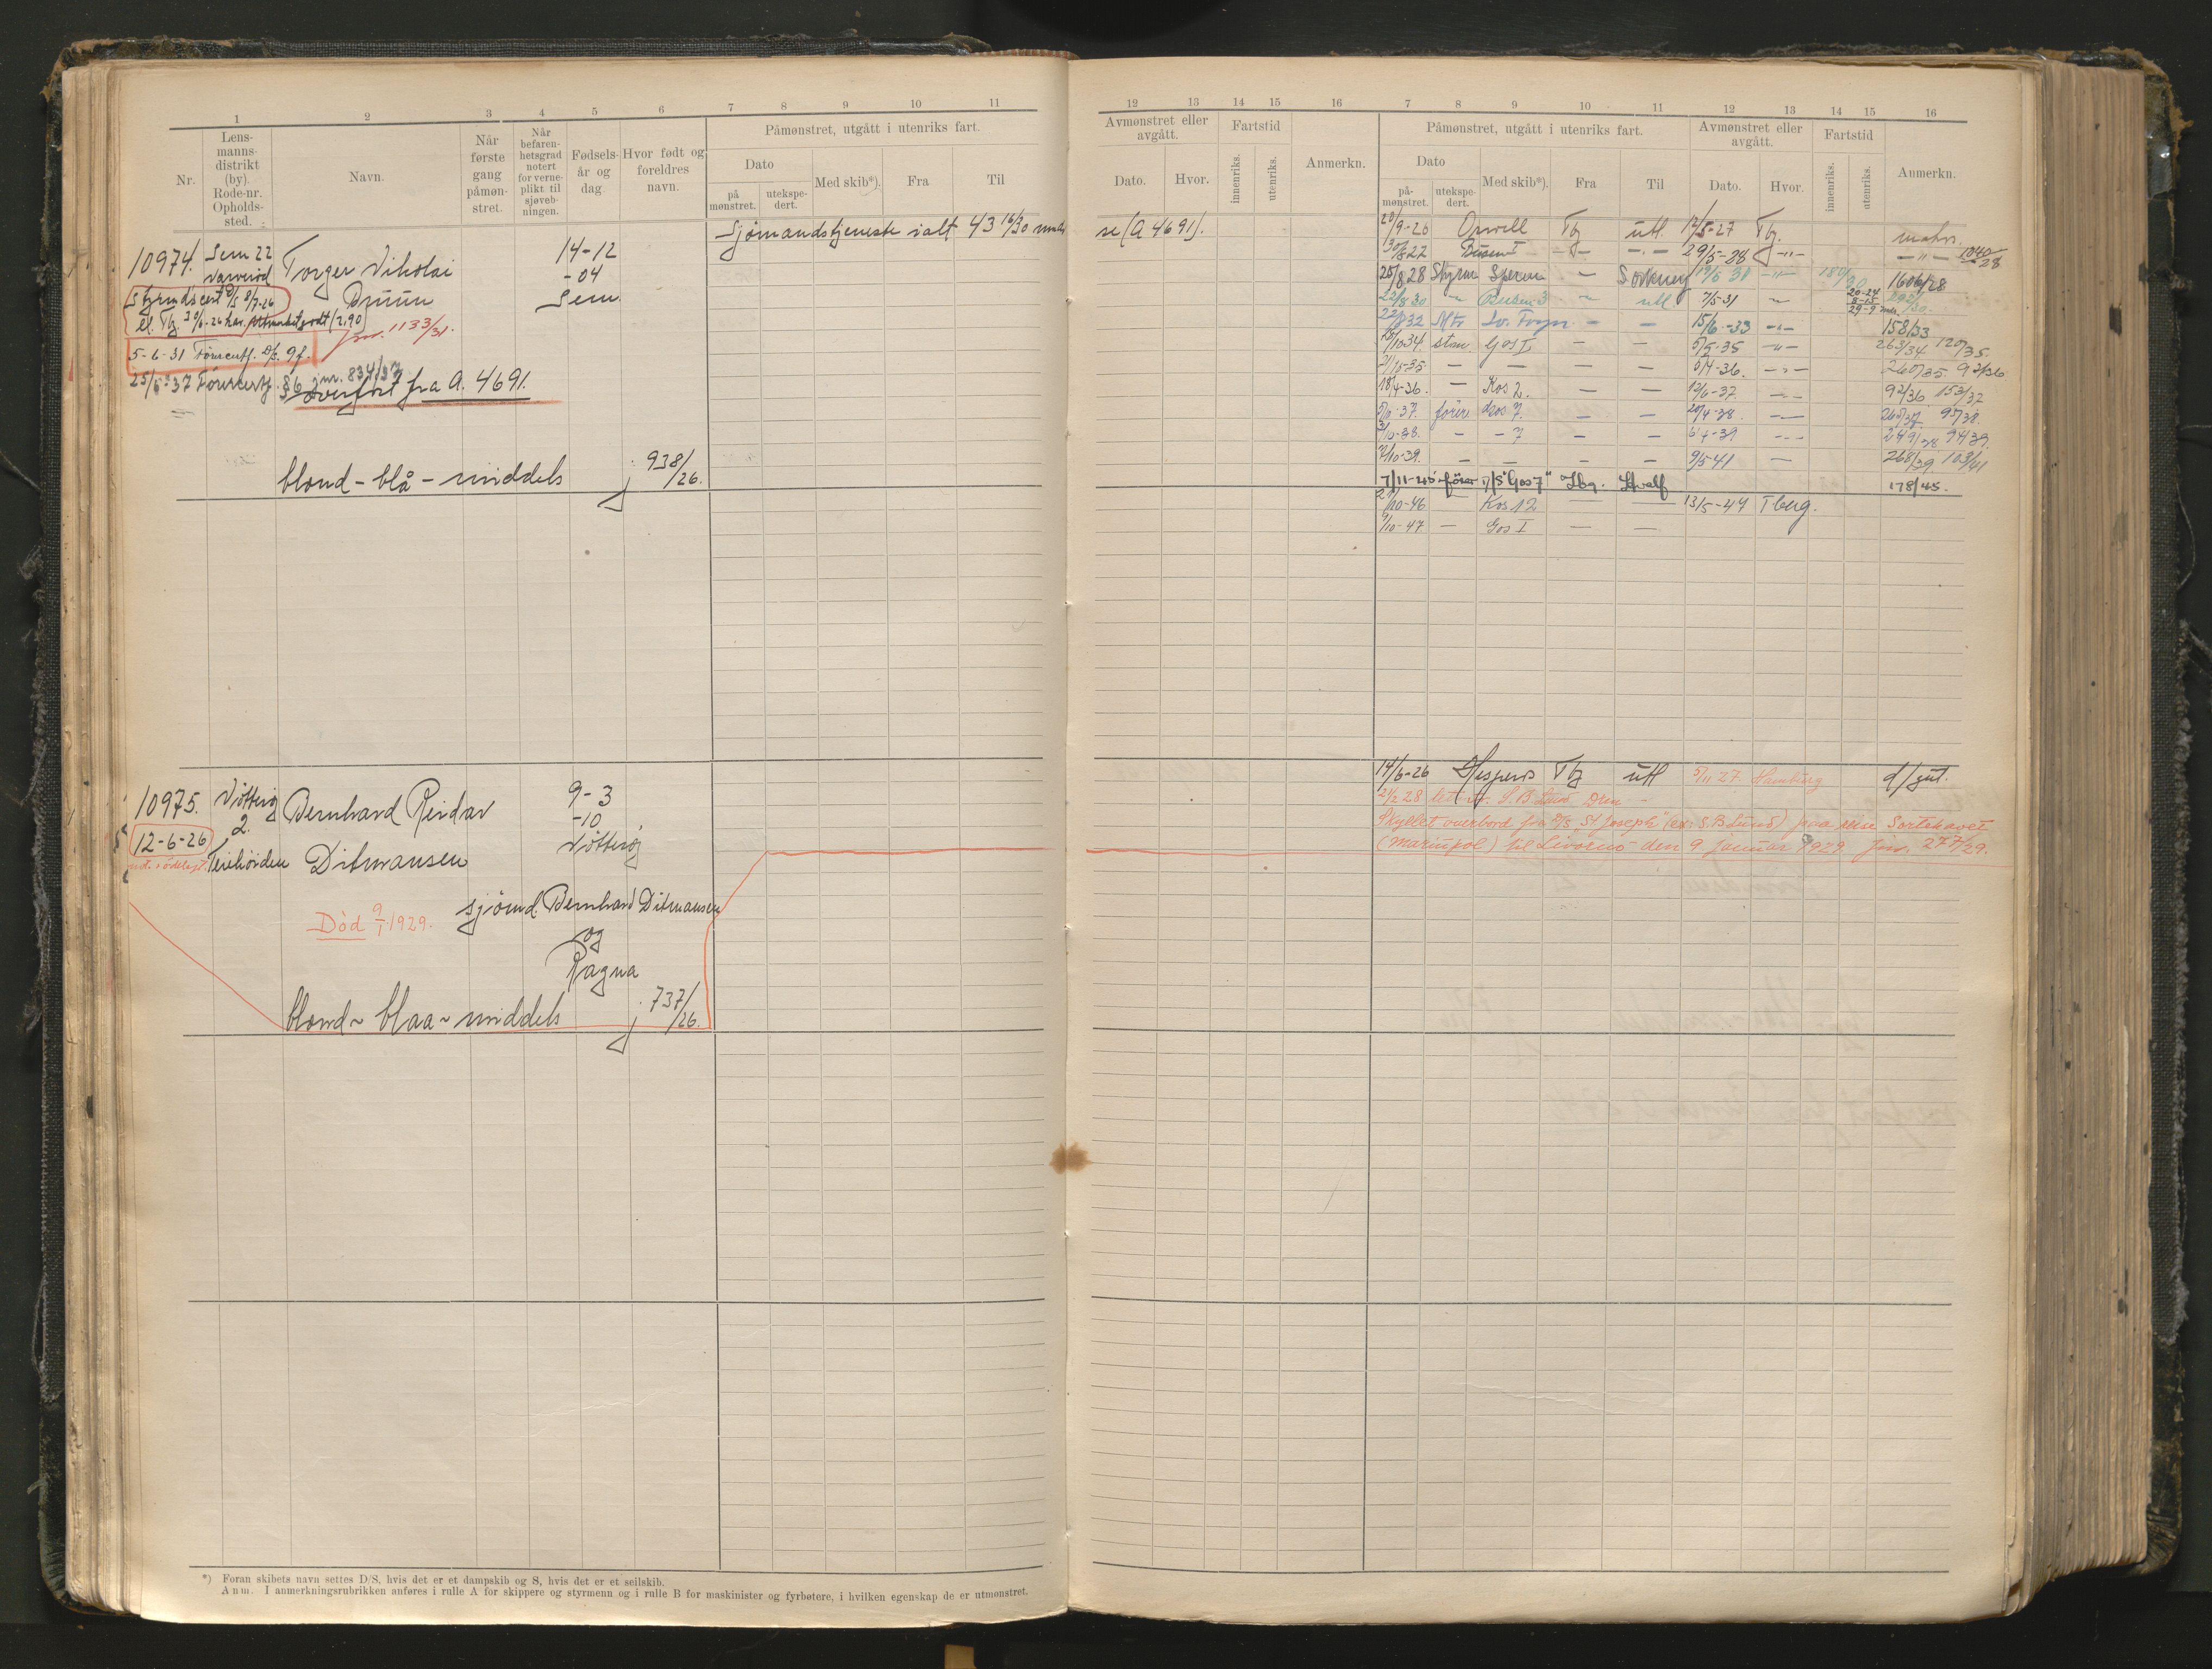 1 2 3 4 5 6 7 8 9 10 11
Nr.
Lens-
manns-
distrikt
(by).
Rode-nr.
Opholds-
sted.
Navn.
Når
første
gang
påmøn-
stret.
Når
befaren-
hetsgrad
notert
for verne-
plikt til
sjøveb-
ningen.
Fødsels-
år og
dag
Hvor født og
foreldres
navn.
Påmønstret, utgått i utenriks fart.
Dato
på
mønstret.
utekspe-
dert.
Med skib*).
Fra
Til
10974.
Sem 22
Varverød
Torger Nikolai
Bruun
14-12
-04
Sem
Sjømandstjeneste ialt 43 16/30 mndr
Styrmdscert D/S 8/7-26
el. Tbg.
jnr. 1133/31.
5-6-31 Førercertf. D/S. 9f.
25/5-37 Førercertf. §6 jnr. 834/37
overført fra A. 4691.
blond - blå - middels
j 938/26.
10975.
Nøtterøy
2.
12-6-26
Teiehöiden
Bernhard Reidar
Ditmansen
9-3
-10
Nøtterøy
Død 9/1 1929.
sjömd. Bernhard Ditmansen
og
Ragna
blond ~ blaa ~ middels
j 737/26.
*) Foran skibets navn settes D/S, hvis det er et dampskib og S, hvis det er et seilskib.
Anm. I anmerkningsrubrikken anføres i rulle A for skippere og styrmenn og i rulle B for maskinister og fyrbøtere, i hvilken egenskap de er utmønstret.
12 13 14 15 16 7 8 9 10 11 12 13 14 15 16
Avmønstret eller
avgått.
Dato.
Hvor.
Fartstid
innenriks.
utenriks.
Anmerkn.
Påmønstret, utgått i utenriks fart.
Dato
på-
mønstret.
utekspe-
dert.
Med skib*).
Fra
Til
Avmønstret eller
avgått.
Dato.
Hvor.
Fartstid
innenriks.
utenriks.
Anmerkn.
se (A 4691).
20/9-26 Orwell Tbg utl. 12/5-27 Tbg. matr.
29/5-28 -"- 1040/28
25/8 28 Styrm Sperm - 19/6 31 -"- 180/30 1606/28
22/8 30 - Busen 3 - utl 7/5-31 - 20-24
292/30.
22/8 32 - - 15/6-33 -"- 158/33
15/10 34. stm. Gos I - - 5/5-35 -"- 263/34. 120/35.
21/15-35 - - - - 5/4-36. -"- 260/35 92/36
18/4-36. - Kos 2. - - 12/6-37. -- 92/36 153/37
5/10-37. förer Kos 7. - - 20/4-38. -- 265/37. 95/38.
3/10-38. - - 7 - - 6/4-39 -- 249/38 94/39.
2/10-39. - - - - 9/5 41 - 268/39. 103/41
7/11-45 förer "Gos 7" Tbg. Hvalf 178/45.
2/10-46 - Kos 12 - - 13/5-47 Tberg.
9/10-47 - Gos I - -
14/6-26 Hesperus Tbg utl 5/11 27 Hamburg d/gut.
21/2 28 let.m. S.B. Lund Drm -
Skyllet overbord fra D/S "St Joseph" (ex. S.B. Lund) paa reise Sortehavet
(Mariupol) til Livorno den 9 januar 1929 jnr. 277/29.